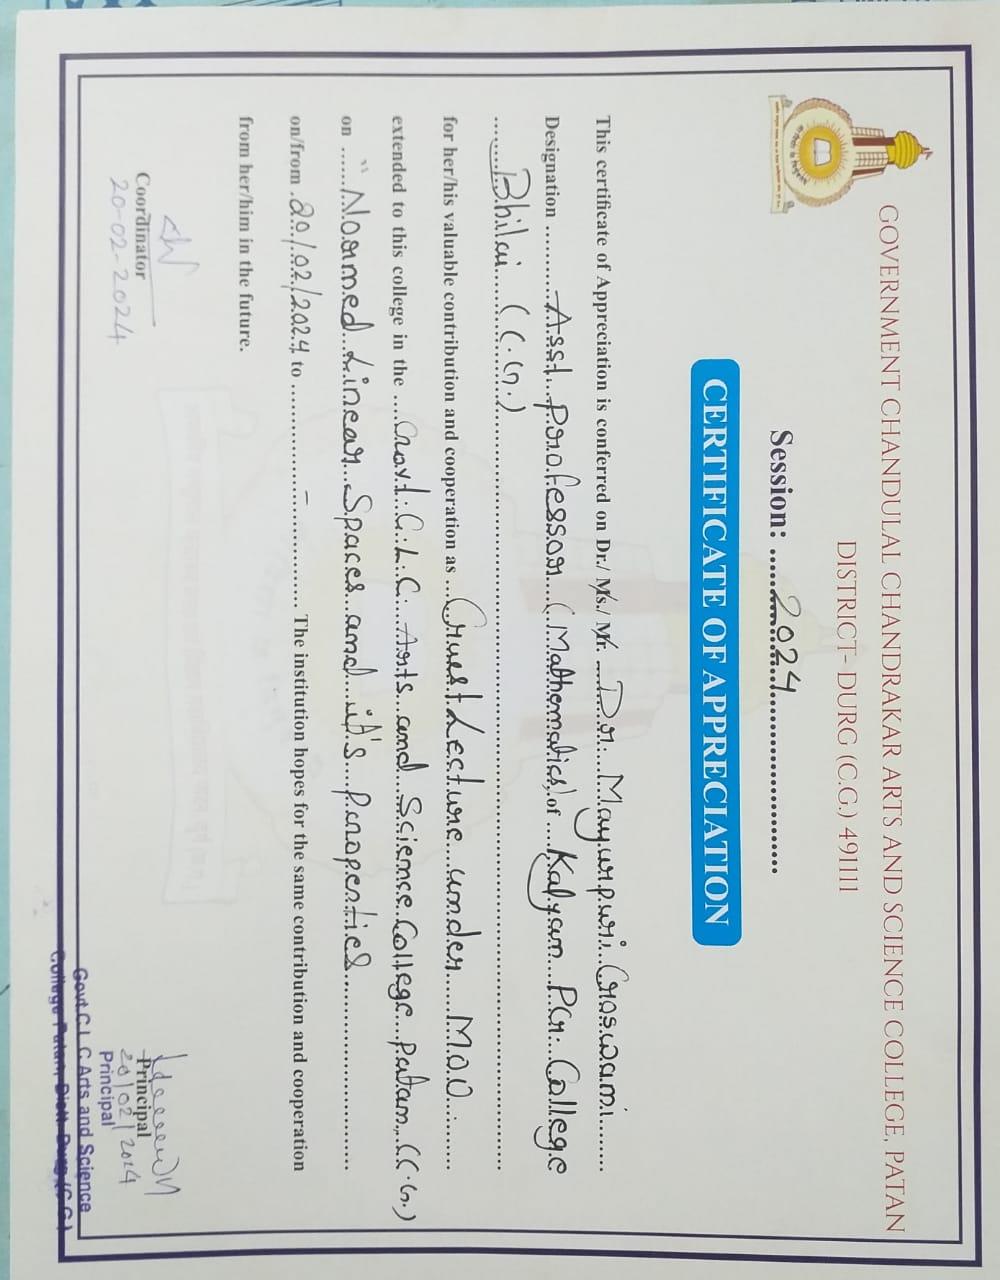 GOVERNMENT CHANDULAL CHANDRAKAR ARTS AND SCIENCE COLLEGE, PATAN
DISTRICT- DURG (C.G.) 491111
Session: ....2024....................
CERTIFICATE OF APPRECIATION
This certificate of Appreciation is conferred on Dr./ Ms./ Mr. ...Dr. Mayurpuri Goswami......
Designation ........Asst. Professor (Mathematics) of ...Kalyan P.G. College
Bhilai (C.G.)
for her/his valuable contribution and cooperation as ...Guest Lecture under MOU.........
extended to this college in the ....Govt. C.L.C. Arts and Science College Patan (C.G.)
on ......"Normed Linear Spaces and it's Properties
on/from .20/02/2024 to ............–............ The institution hopes for the same contribution and cooperation
from her/him in the future.
Coordinator
20-02-2024
Principal
20/02/2024
Principal
Govt.C.L.C.Arts and Science
College Patan, Distt. Durg (C.G.)